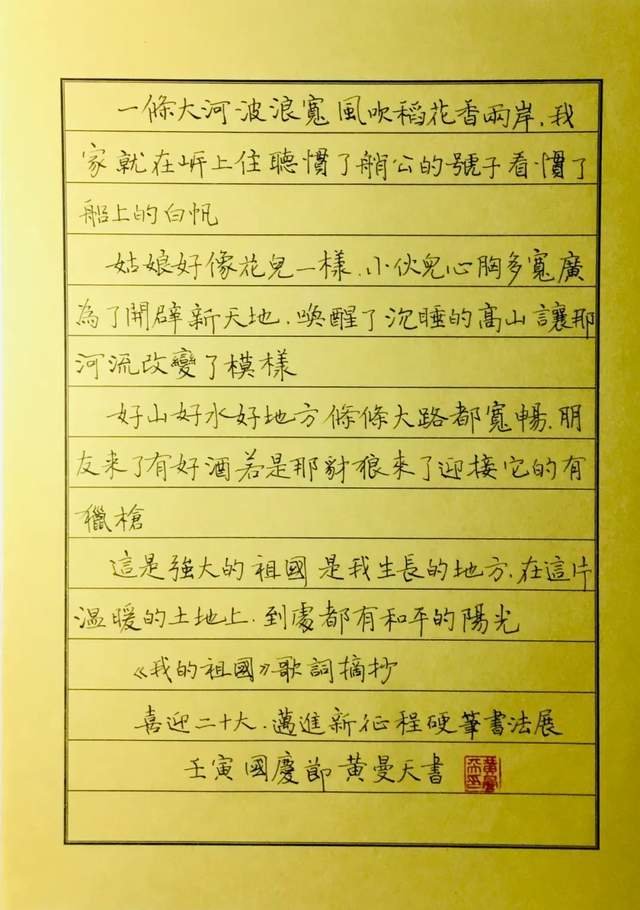 一條大河波浪寬風吹稻花香兩岸.我
家就在岍上住聽慣了艄公的號子看慣了
船上的白帆
姑娘好像花兒一樣.小伙兒心胸多寬廣
為了開辟新天地.喚醒了沉睡的高山讓那
河流改變了模樣
好山好水好地方條條大路都寬暢.朋
友来了有好酒若是那豺狼來了迎接它的有
獵槍
這是強大的祖國是我生長的地方.在這片
溫暖的土地上.到處都有和平的陽光
《我的祖國》歌詞摘抄
喜迎二十大.邁進新征程硬筆書法展
壬寅國慶節黄曼天書